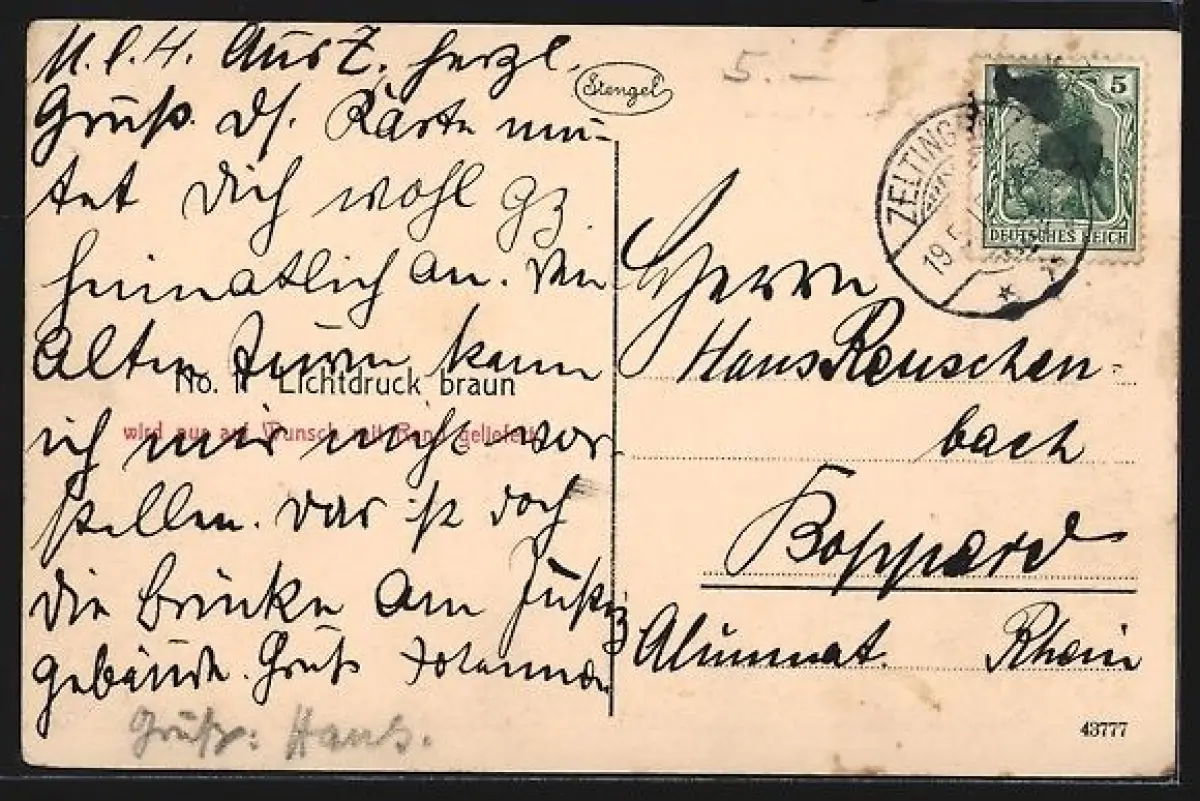 M. l. H. Aus Z. herzl.
Gruß. Ds. Karte mu-
tet Dich wohl gz.
heimatlich an. Den
Alten Turm kann
ich mir nicht vor-
stellen. Das ist doch
die Brücke am Justiz
gebäude. Gruß
Gruß: Hans.
No. 1. Lichtdruck braun
wird nur auf Wunsch mit Rand geliefert
Stengel
5.–
5
DEUTSCHES REICH
ZELTINGEN
19.5.
Herrn
Hans Reuschen-
bach
Boppard
Alumnat. Rhein
43777